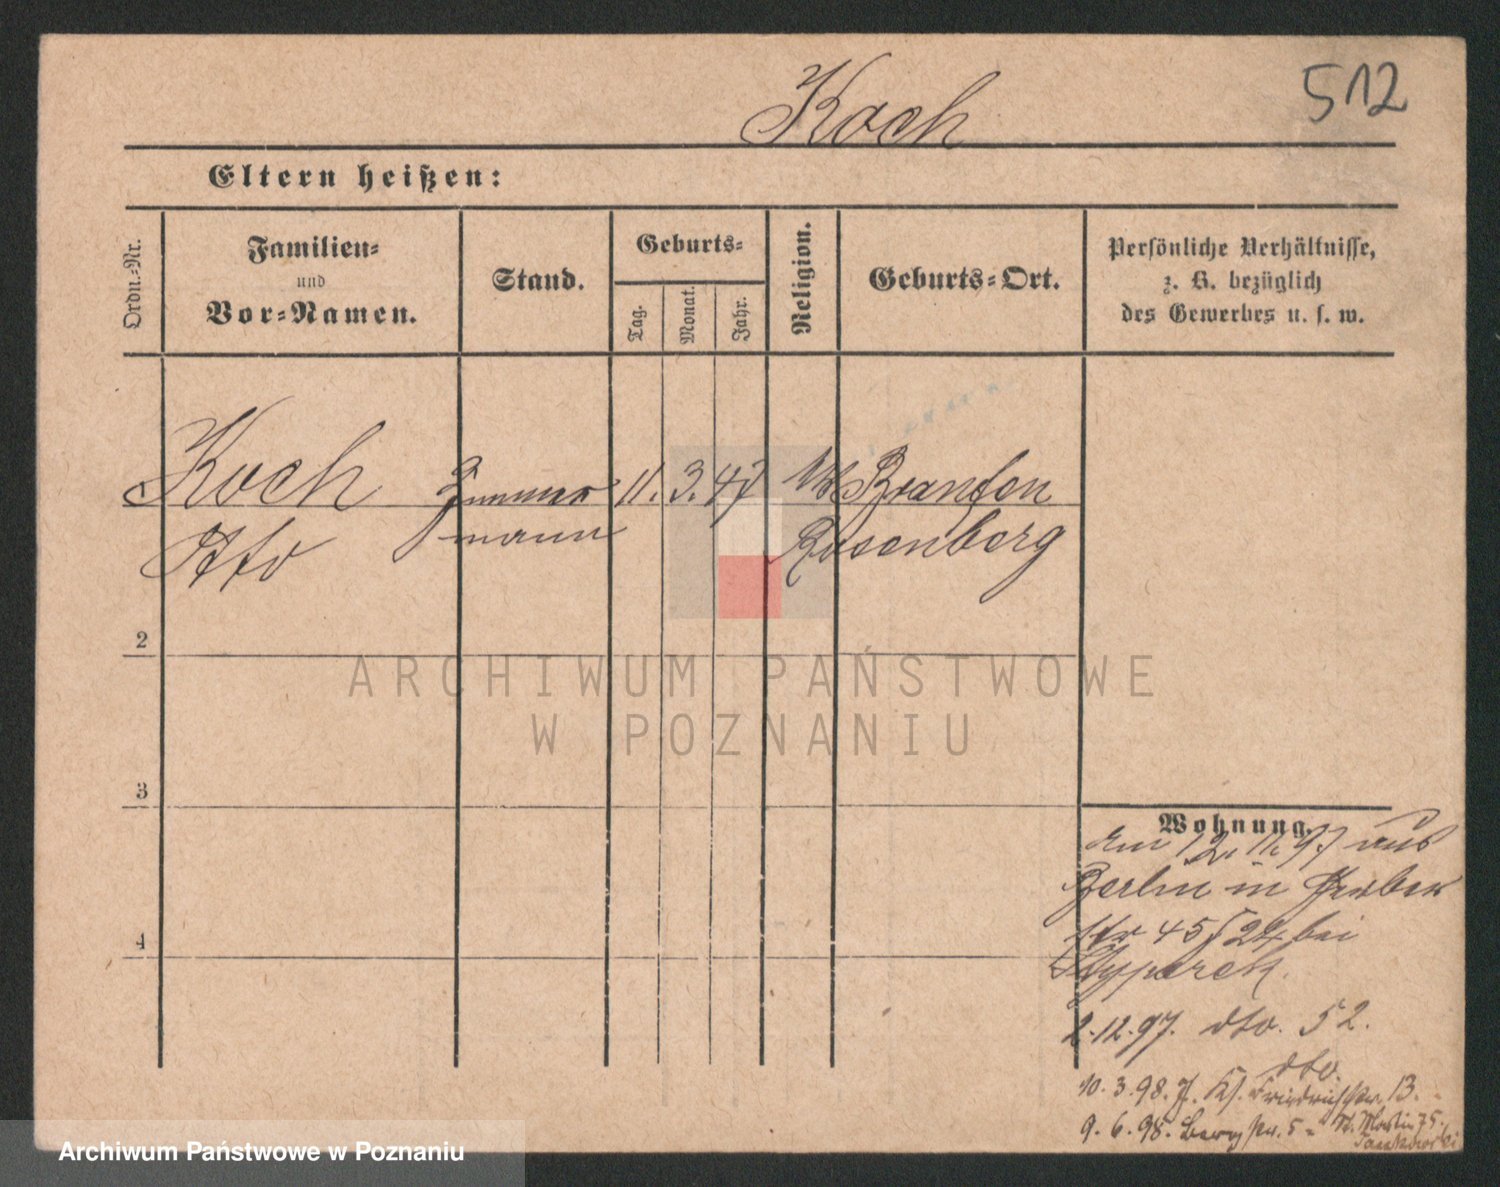 Koch
512
Eltern heißen:
Ordn.-Nr.
Familien-
und
Vor-Namen.
Stand.
Geburts-
Tag.
Monat.
Jahr.
Religion.
Geburts-Ort.
Persönliche Verhältnisse,
z. B. bezüglich
des Gewerbes u. s. w.
Koch
Otto
Zimmer
mann
11. 3. 47
Branson
Rosenberg
2
3
4
ARCHIWUM PAŃSTWOWE
W POZNANIU
Wohnung.
am 12. 11. 97 aus
Berlin in Gerber
str 45/24 bei
2.12.97. dto. 52.
dto.
10. 3. 98. Kl. Friedrichstr. 13.
9. 6. 98. Bergstr. 5 - St. Martin 75.
Archiwum Państwowe w Poznaniu